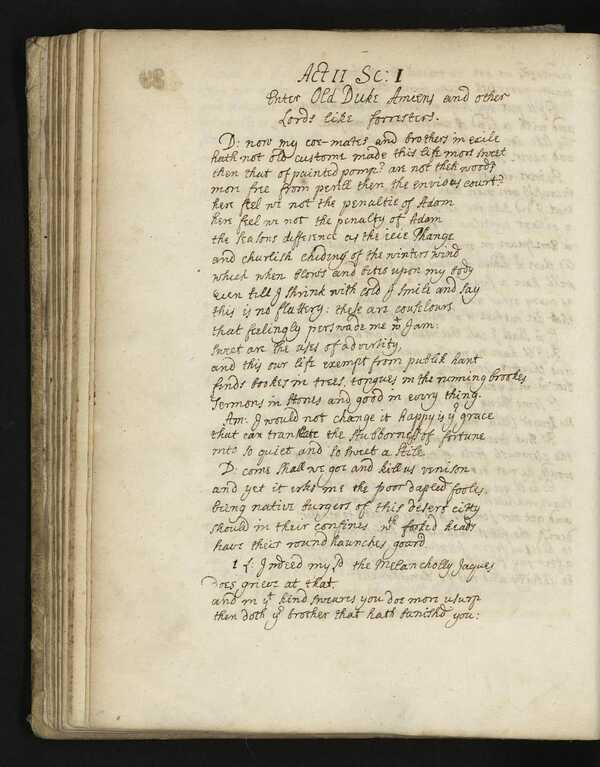 Act II Sc: I
Enter Old Duke Amiens and other
Lords like forresters.
D: now my coe-mates and brothers in exile
hath not old custome made this life more sweet
then that of painted pomp? are not thes woods
more free from perill then the envious court?
here feel we not the penaltie of Adam
here feel we not the penalty of Adam
the seasons difference as the icie Phange
and churlish chiding of the winters wind
which when blows and bites upon my body
even till I shrink with cold I smile and say
this is no flattery: these are counselours
that feelingly perswade me wt I am:
sweet are the uses of adversity,
and this our life exempt from publik hant
finds bookes in trees, tongues in the running brookes
sermons in stones and good in every thing.
Am: I would not change it happy is yr grace
that can translate the stubborness of fortune
into so quiet and so sweet a stile
D: come shall we goe and kill us venison
and yet it erks me the poor dapled fooles,
being native burgers of this desert citty
should in their confines wth forked heads
have their round haunches goard
1 L: Indeed my Ld the Melancholly Jaques
does grieve at that
and in yt kind sweares you doe more usurp
then doth yr brother that hath banishd you: